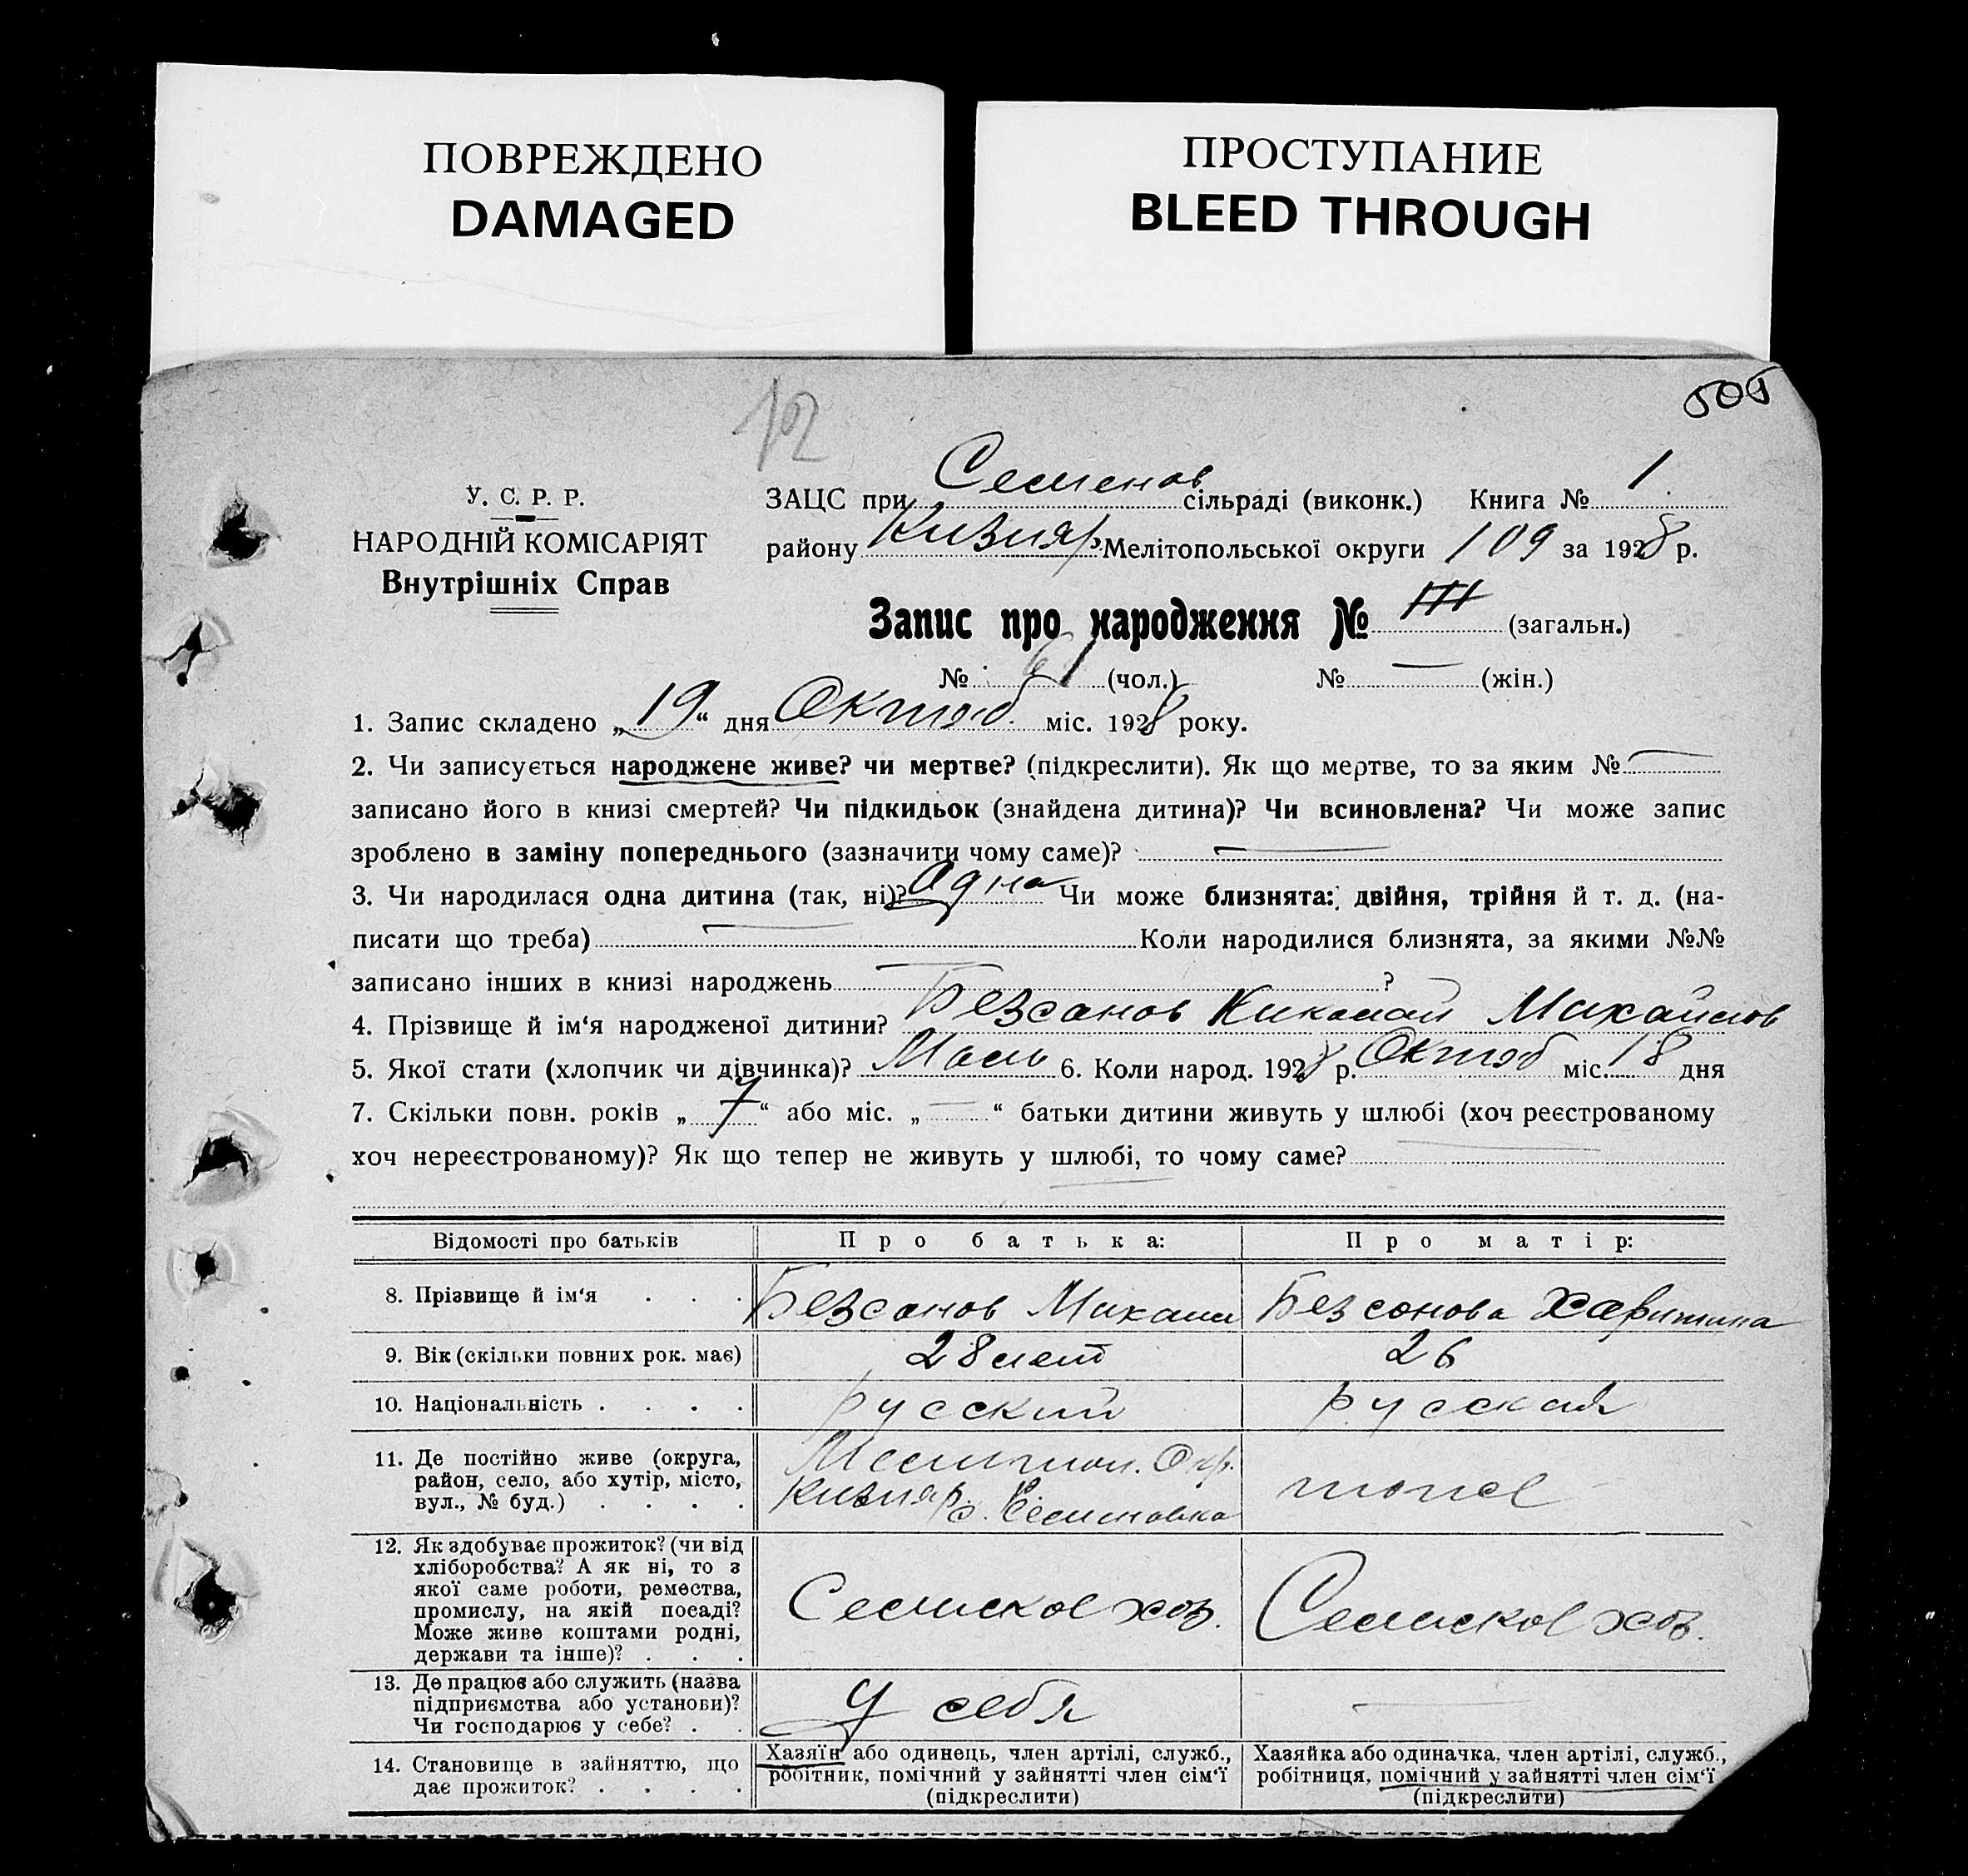 ПОВРЕЖДЕНО
DAMAGED
ПРОСТУПАНИЕ
BLEED THROUGH
505
12
У. С. Р. Р.
НАРОДНІЙ КОМІСАРІЯТ
Внутрішніх Справ
ЗАЦС при Семенов сільраді (виконк.) Книга № 1
району Кизияр. Мелітопольської округи 109 за 1928 р.
Запис про народження № 111 (загальн.)
№ 61 (чол.) № — (жін.)
1. Запис складено „19“ дня Октяб. міс. 1928 року.
2. Чи записується народжене живе? чи мертве? (підкреслити). Як що мертве, то за яким № —
записано його в книзі смертей? Чи підкидьок (знайдена дитина)? Чи всиновлена? Чи може запис
зроблено в заміну попереднього (зазначити чому саме)? —
3. Чи народилася одна дитина (так, ні)? Одна Чи може близнята: двійня, трійня й т. д. (на-
писати що треба) — Коли народилися близнята, за якими №№
записано інших в книзі народжень — ?
4. Прізвище й ім‘я народженої дитини? Безсанов Николай Михайлов
5. Якої стати (хлопчик чи дівчинка)? Маль 6. Коли народ. 1928 р. Октяб міс. 18 дня
7. Скільки повн. років „7“ або міс. „—“ батьки дитини живуть у шлюбі (хоч реєстрованому
хоч нереєстрованому)? Як що тепер не живуть у шлюбі, то чому саме? —
Відомості про батьків Про батька: Про матір:
8. Прізвище й ім‘я . . . Безсонов Михаил Безсонова Харитина
9. Вік (скільки повних рок. має) 28 лет 26
10. Національність . . . . русский русская
11. Де постійно живе (округа,
район, село, або хутір, місто,
вул., № буд.) . . . .
Мелитоп. Окр.
Кизияр. с. Семеновка
тоже
12. Як здобуває прожиток? (чи від
хліборобства? А як ні, то з
якої саме роботи, ремества,
промислу, на якій посаді?
Може живе коштами родні,
держави та інше)? . . .
Сельское хоз.
Сельское хоз.
13. Де працює або служить (назва
підприємства або установи)?
Чи господарює у себе? . .
У себя
—
14. Становище в зайняттю, що
дає прожиток? . . . .
Хазяїн або одинець, член артілі, служб.,
робітник, помічний у зайнятті член сім‘ї
(підкреслити)
Хазяйка або одиначка, член артілі, служб.,
робітниця, помічний у зайнятті член сім‘ї
(підкреслити)